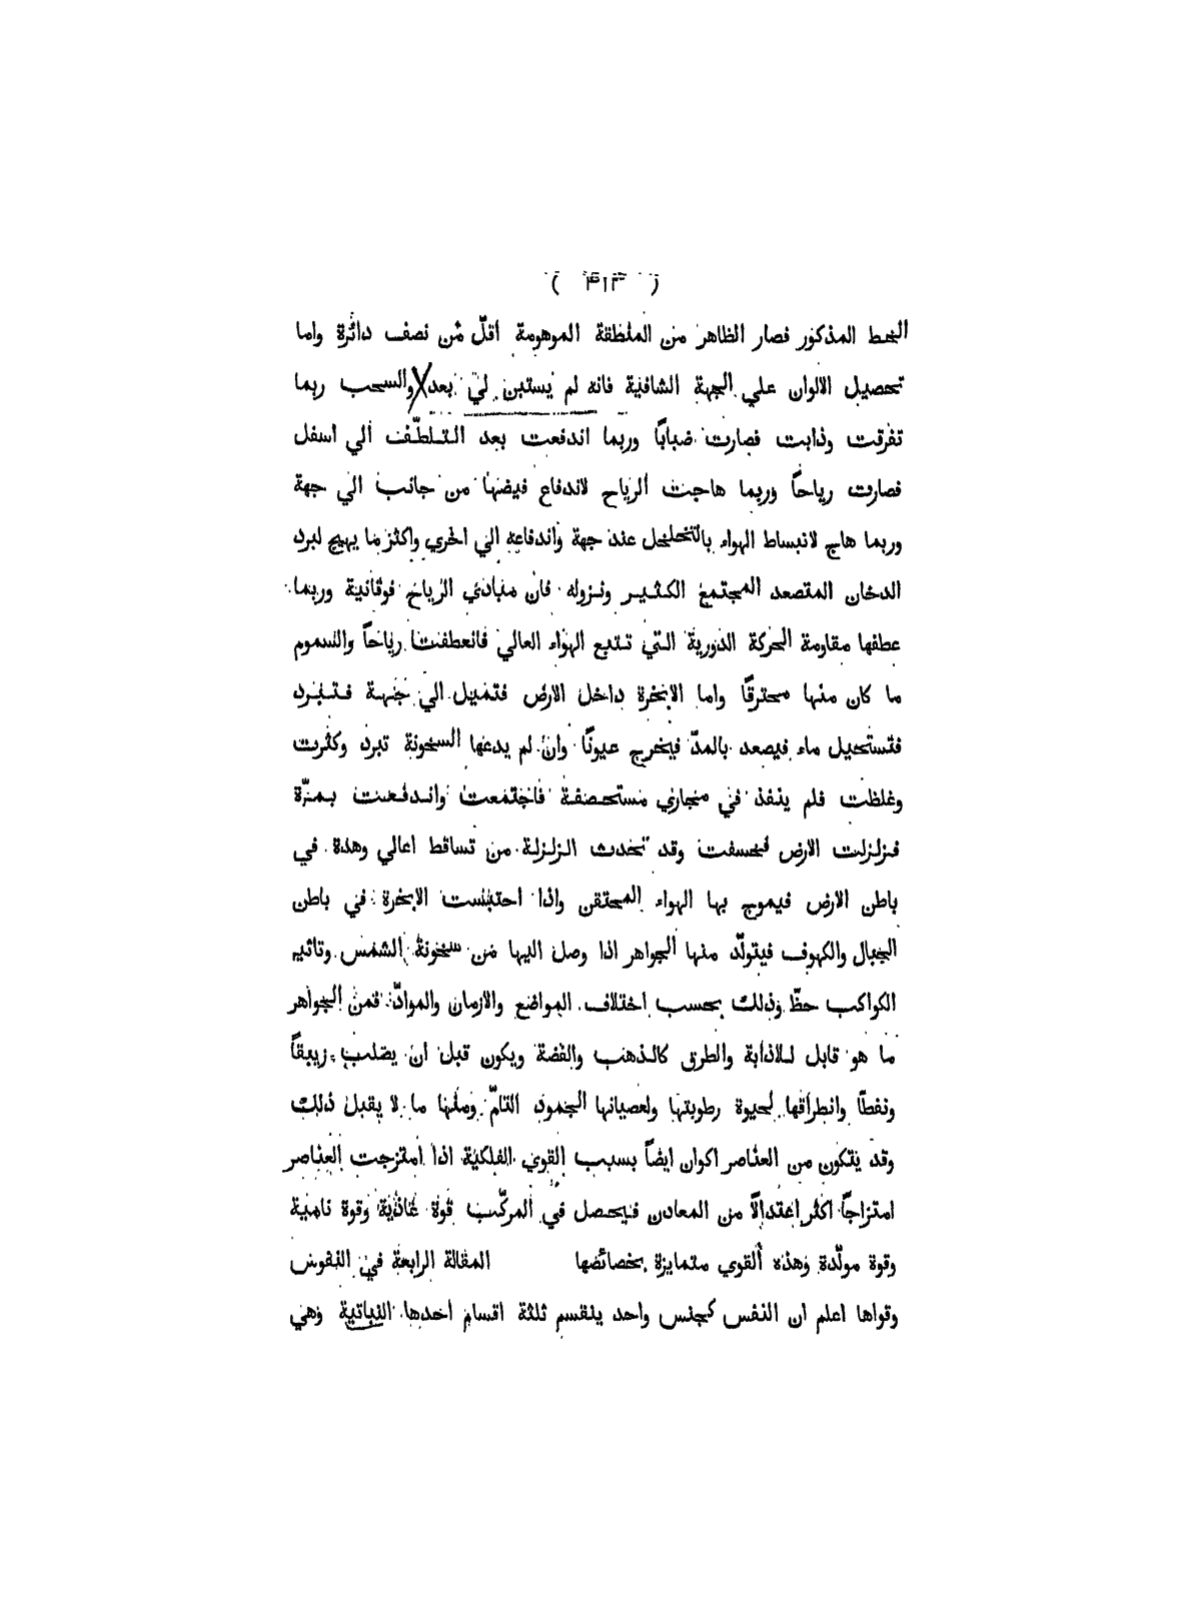 ( ٤١٣ )
الخط المذكور فصار الظاهر من المنطقة الموهومة اقلّ من نصف دائرة واما
تحصيل الالوان علي الجهة الشافية فانه لم يستبن لي بعد والسحب ربما
تفرقت وذابت فصارت ضبابًا وربما اندفعت بعد التلطّف الي اسفل
فصارت رياحًا وربما هاجت الرياح لاندفاع فيضها من جانب الي جهة
وربما هاج لانبساط الهواء بالتخلخل عند جهة واندفاعه الي اخري واكثر ما يهيج لبرد
الدخان المتصعد المجتمع الكثير ونزوله فان مبادي الرياح فوقانية وربما
عطفها مقاومة الحركة الدورية التي تتبع الهواء العالي فانعطفت رياحًا والسموم
ما كان منها محترقًا واما الابخرة داخل الارض فتميل الي جهة فتبرد
فتستحيل ماء فيصعد بالمدّ فيخرج عيونًا وان لم يدعها السخونة تبرد وكثرت
وغلظت فلم ينفذ في مجاري مستحصفة فاجتمعت واندفعت بمرّة
فزلزلت الارض فخسفت وقد تحدث الزلزلة من تساقط اعالي وهدة في
باطن الارض فيموج بها الهواء المحتقن واذا احتبست الابخرة في باطن
الجبال والكهوف فيتولّد منها الجواهر اذا وصل اليها من سخونة الشمس وتاثير
الكواكب حظّ وذلك بحسب اختلاف المواضع والازمان والموادّ فمن الجواهر
ما هو قابل للاذابة والطرق كالذهب والفضة ويكون قبل ان يصلب زيبقًا
ونفطًا وانطراقها لحيوة رطوبتها ولعصيانها الجمود التامّ ومنها ما لا يقبل ذلك
وقد يتكون من العناصر اكوان ايضًا بسبب القوي الفلكية اذا امتزجت العناصر
امتزاجًا اكثر اعتدالًا من المعادن فيحصل في المركّب قوة غاذية وقوة نامية
وقوة مولّدة وهذه القوي متمايزة بخصائصها المقالة الرابعة في النفوس
وقواها اعلم ان النفس كجنس واحد ينقسم ثلثة اقسام احدها النباتية وهي